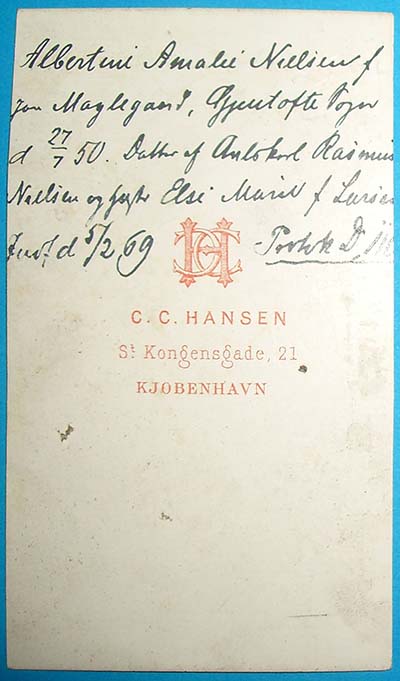 Albertine Amalie Nielsen f
paa Maglegaard, Gjentofte Sogn
d 27/7 50. Datter af Rasmus
Nielsen og Else Marie f Larsen
d 5/2 69 Protok D
CCH
C. C. HANSEN
St Kongensgade, 21
KJØBENHAVN